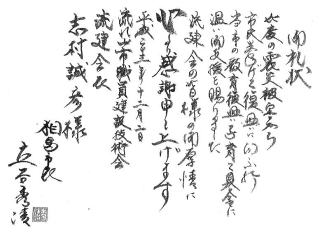 御礼状
此度の震災被害から
市民並びに復興にいわれ
当市の教育復興に子育て基金に
温い御支援を賜りました
流建会の皆様の御厚情に
心から感謝申し上げます
平成二十三年十二月二日
流山市職員建設技術会
流建会長
志村誠彦様
相馬市長
立谷秀清